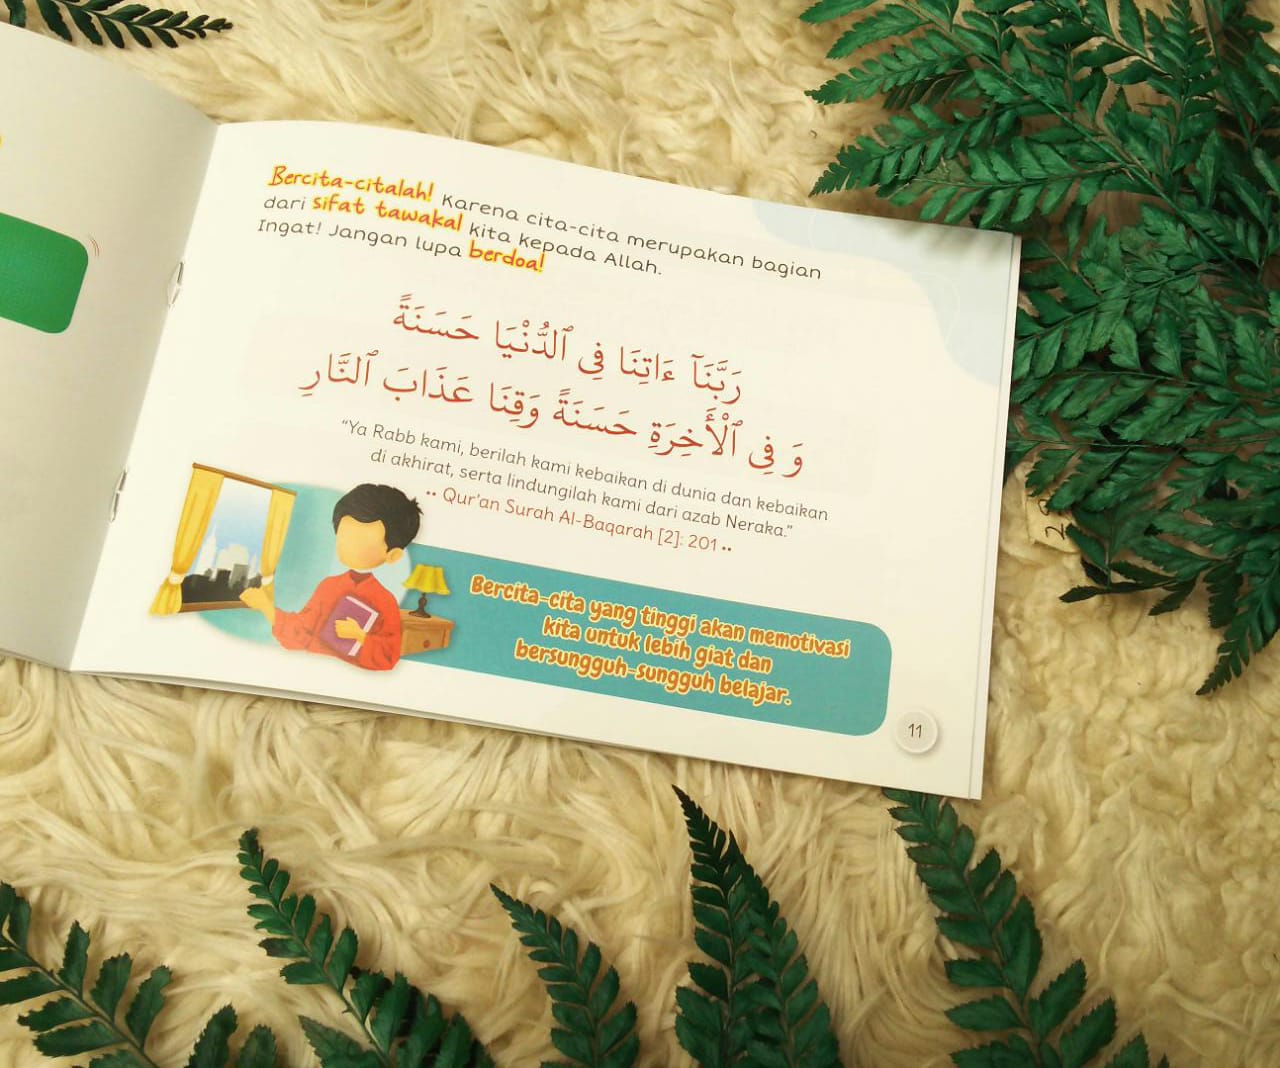 Bercita-citalah! Karena cita-cita merupakan bagian
dari sifat tawakal kita kepada Allah.
Ingat! Jangan lupa berdoa!
رَبَّنَآ ءَاتِنَا فِي ٱلدُّنْيَا حَسَنَةً
وَ فِي ٱلْأَخِرَةِ حَسَنَةً وَقِنَا عَذَابَ ٱلنَّارِ
“Ya Rabb kami, berilah kami kebaikan di dunia dan kebaikan
di akhirat, serta lindungilah kami dari azab Neraka.”
•• Qur'an Surah Al-Baqarah [2]: 201 ••
Bercita-cita yang tinggi akan memotivasi
kita untuk lebih giat dan
bersungguh-sungguh belajar.
11